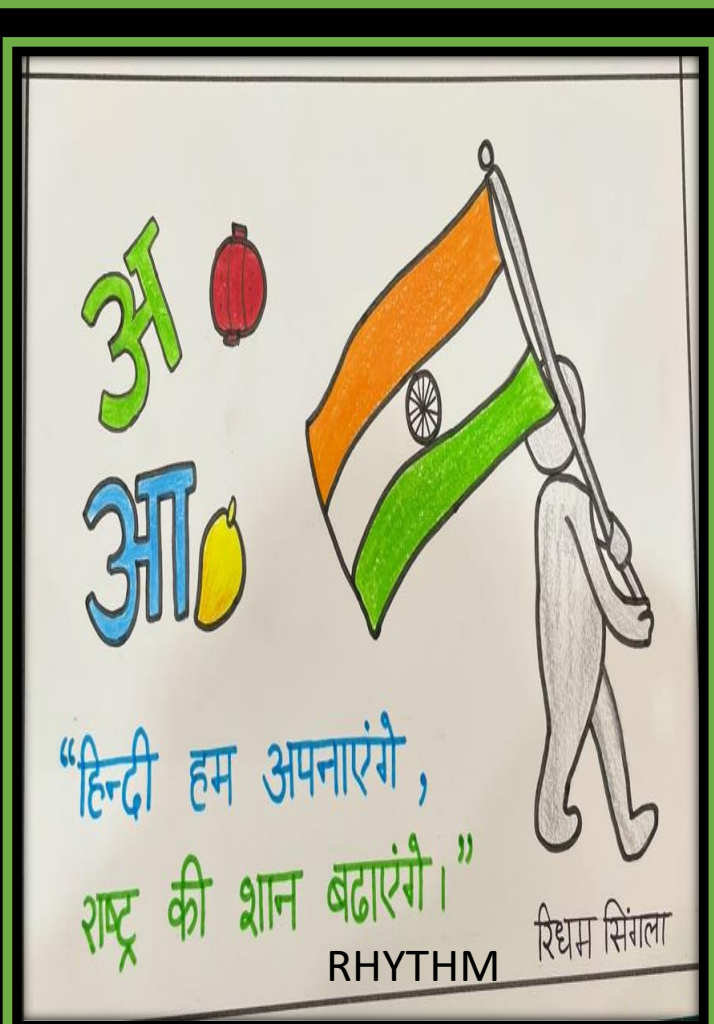 अ
आ
“हिन्दी हम अपनाएंगे,
राष्ट्र की शान बढाएंगे।”
रिधम सिंगला
RHYTHM